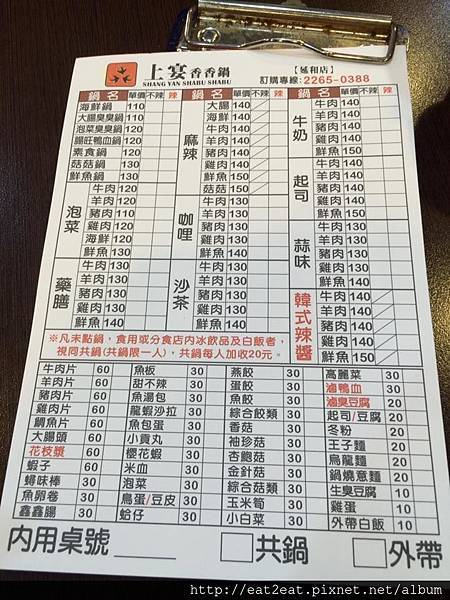 上宴香香鍋
SHANG YAN SHABU SHABU
【延和店】
訂購專線：2265-0388
鍋名 單價 不辣 辣
海鮮鍋 110
大腸臭臭鍋 110
泡菜臭臭鍋 120
腸旺鴨血鍋 120
素食鍋 120
菇菇鍋 130
鮮魚鍋 130
泡菜
牛肉 120
羊肉 120
豬肉 110
雞肉 120
海鮮 120
鮮魚 130
藥膳
牛肉 130
羊肉 130
豬肉 130
雞肉 130
鮮魚 140
鍋名 單價 不辣 辣
麻辣
大腸 140
牛肉 140
羊肉 140
豬肉 140
雞肉 140
鮮魚 150
菇菇 150
咖哩
牛肉 130
羊肉 130
豬肉 130
雞肉 130
鮮魚 140
沙茶
牛肉 130
羊肉 130
豬肉 130
雞肉 130
鮮魚 140
鍋名 單價 不辣 辣
牛奶 起司
牛肉 140
羊肉 140
豬肉 140
雞肉 140
鮮魚 150
牛肉 140
羊肉 140
豬肉 140
雞肉 140
鮮魚 150
蒜味
牛肉 140
羊肉 140
豬肉 140
雞肉 140
鮮魚 150
韓式辣醬
牛肉 140
羊肉 140
豬肉 140
雞肉 140
鮮魚 150
※凡未點鍋，食用或分食店內冰飲品及白飯者，
視同共鍋(共鍋限一人)，共鍋每人加收20元。
牛肉片 60
羊肉片 60
豬肉片 60
雞肉片 60
鯛魚片 60
大腸頭 60
花枝漿 60
蝦子 60
蟳味棒 30
魚卵卷 30
鑫鑫腸 30
魚板 30
甜不辣 30
魚湯包 30
龍蝦沙拉 30
魚包蛋 30
小貢丸 30
櫻花蝦 30
米血 30
泡菜 30
鳥蛋/豆皮 30
蛤仔 30
燕餃 30
蛋餃 30
魚餃 30
綜合餃類 30
香菇 30
袖珍菇 30
杏鮑菇 30
金針菇 30
綜合菇類 30
玉米筍 30
小白菜 30
高麗菜 30
滷鴨血 30
滷臭豆腐 20
起司/豆腐 20
冬粉 20
王子麵 20
烏龍麵 20
鍋燒意麵 20
生臭豆腐 10
雞蛋 10
外帶白飯 10
內用桌號
共鍋
外帶
http://eat2eat.pixnet.net/album